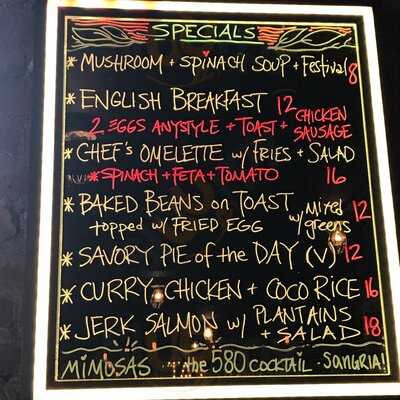 SPECIALS
* MUSHROOM + SPINACH SOUP + Festival 8
* ENGLISH BREAKFAST 12
2 EGGS ANYSTYLE + TOAST + CHICKEN SAUSAGE
* CHEF'S OMELETTE w/ FRIES + SALAD
* SPINACH + FETA + TOMATO 16
* BAKED BEANS on TOAST
topped w/ FRIED EGG w/ mixed greens 12
* SAVORY PIE of the DAY (V) 12
* CURRY CHICKEN + COCO RICE 16
* JERK SALMON w/ PLANTAINS
+ SALAD 18
MIMOSAS - the 580 COCKTAIL - SANGRIA!